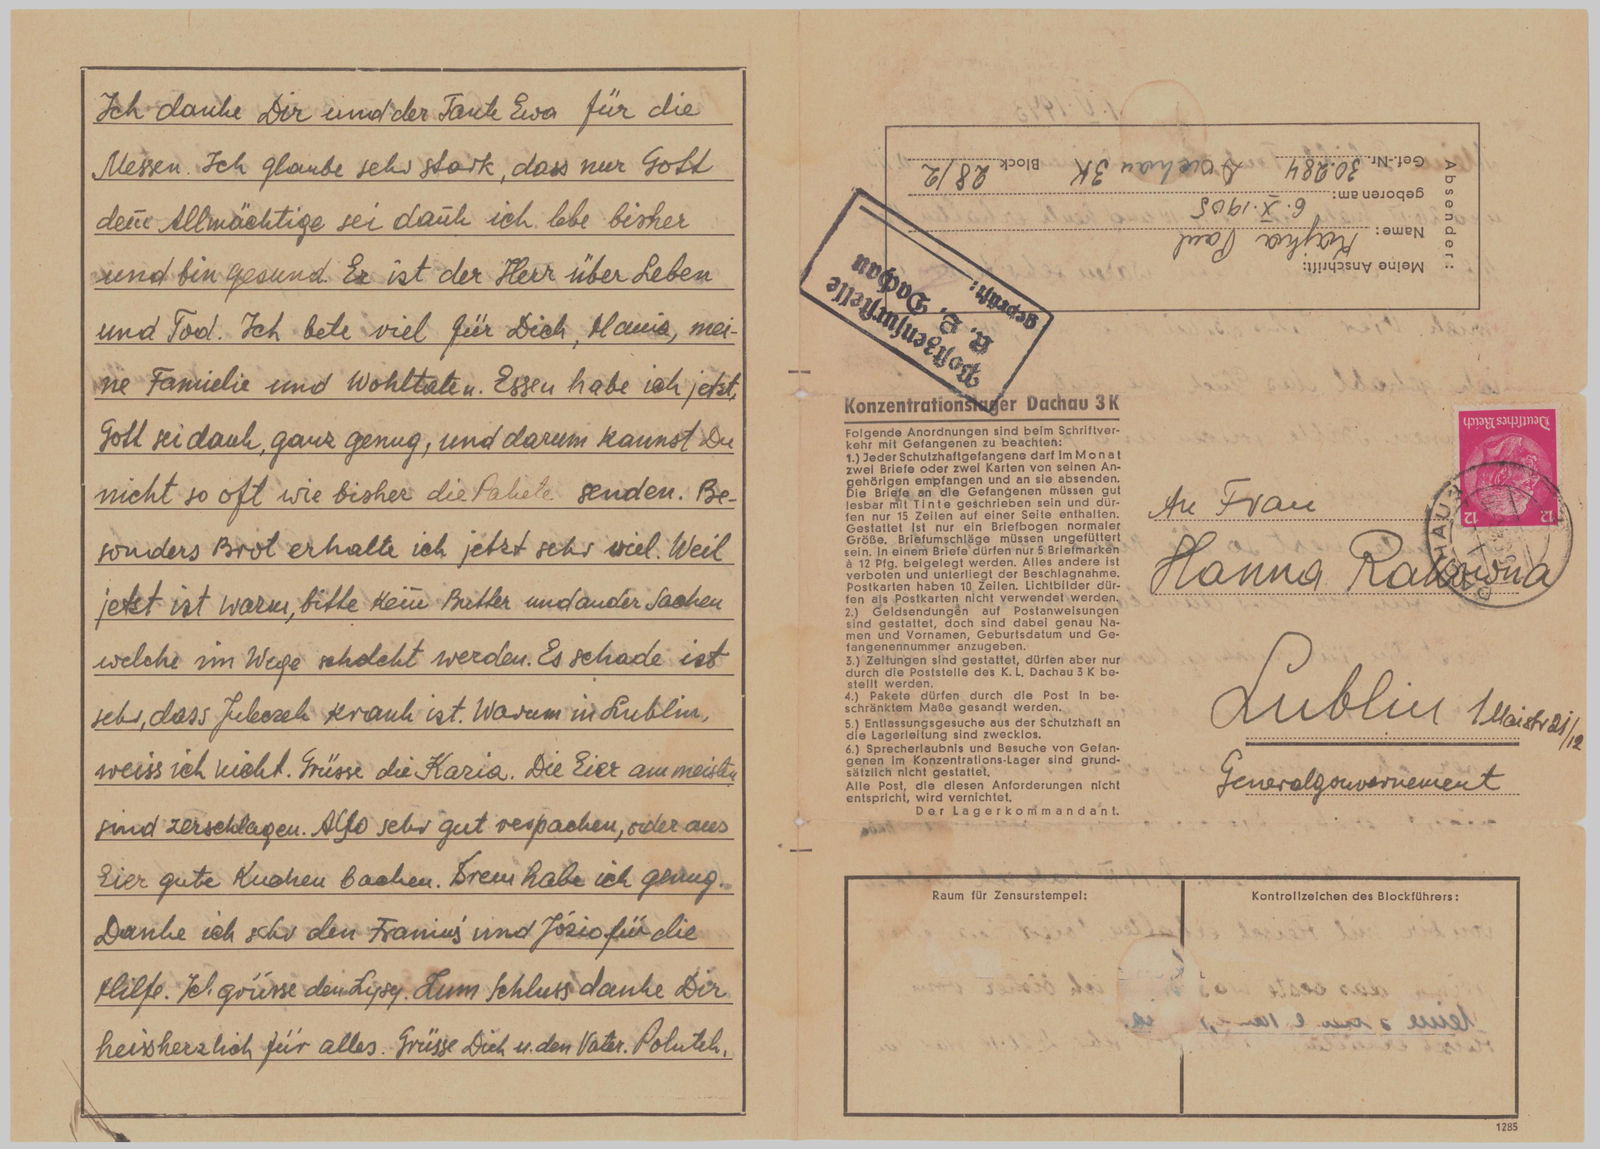 Ich danke Dir und der Tante Ewa für die
Messen. Ich glaube sehr stark, dass nur Gott
dem Allmächtige sei dank ich lebe bisher
und bin gesund. Er ist der Herr über Leben
und Tod. Ich bete viel für Dich, Hania, mei-
ne Famielie und Wohltaten. Essen habe ich jetzt,
Gott sei dank, ganz genug, und darum kannst Du
nicht so oft wie bisher die Pakete senden. Be-
sonders Brot erhalte ich jetzt sehr viel. Weil
jetzt ist warm, bitte kein Butter und ander Sachen
welche im Wege schlecht werden. Es schade ist
sehr, dass krank ist. Warum in Lublin,
weiss ich nicht. Grüsse die Kazia. Die Eier am meisten
sind zerschlagen. Also sehr gut verpacken, oder aus
Eier gute Kuchen backen. habe ich genug.
Danke ich sehr den und Józio für die
Hilfe. Ich grüsse den Lysy. Zum Schluss danke Dir
heissherzlich für alles. Grüsse Dich u. den Vater.
Absender:
Meine Anschrift:
Name: Paul
geboren am: 6. X. 1905
Gef.-Nr. 30.284 Dachau 3K Block 28/2
Postzensurstelle
K. L. Dachau
geprüft:
Konzentrationslager Dachau 3 K
Folgende Anordnungen sind beim Schriftver-
kehr mit Gefangenen zu beachten:
1.) Jeder Schutzhaftgefangene darf im Monat
zwei Briefe oder zwei Karten von seinen An-
gehörigen empfangen und an sie absenden.
Die Briefe an die Gefangenen müssen gut
lesbar mit Tinte geschrieben sein und dür-
fen nur 15 Zeilen auf einer Seite enthalten.
Gestattet ist nur ein Briefbogen normaler
Größe. Briefumschläge müssen ungefüttert
sein. In einem Briefe dürfen nur 5 Briefmarken
à 12 Pfg. beigelegt werden. Alles andere ist
verboten und unterliegt der Beschlagnahme.
Postkarten haben 10 Zeilen. Lichtbilder dür-
fen als Postkarten nicht verwendet werden.
2.) Geldsendungen auf Postanweisungen
sind gestattet, doch sind dabei genau Na-
men und Vornamen, Geburtsdatum und Ge-
fangenennummer anzugeben.
3.) Zeitungen sind gestattet, dürfen aber nur
durch die Poststelle des K. L. Dachau 3 K be-
stellt werden.
4.) Pakete dürfen durch die Post in be-
schränktem Maße gesandt werden.
5.) Entlassungsgesuche aus der Schutzhaft an
die Lagerleitung sind zwecklos.
6.) Sprecherlaubnis und Besuche von Gefan-
genen im Konzentrations-Lager sind grund-
sätzlich nicht gestattet.
Alle Post, die diesen Anforderungen nicht
entspricht, wird vernichtet.
Der Lagerkommandant.
Deutsches Reich
12 12
DACHAU
An Frau
Hanna
Lublin 1 Maistr 21/12
Generalgouvernement
Raum für Zensurstempel:
Kontrollzeichen des Blockführers:
1285